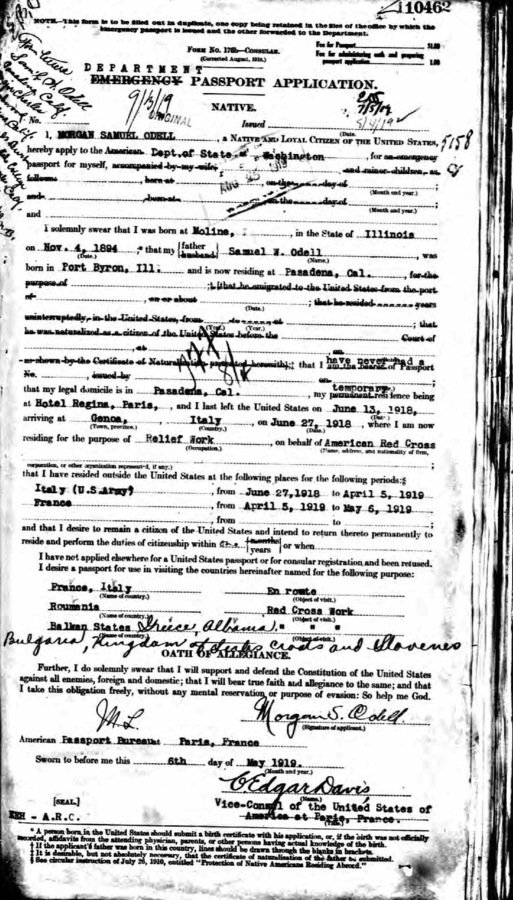 110462
NOTE.—This form is to be filled out in duplicate, one copy being retained in the files of the office by which the
emergency passport is issued and the other forwarded to the Department.
FORM No. 176b—CONSULAR.
(Corrected August, 1918.)
Fee for Passport $1.00
Fee for administering oath and preparing
passport application. 1.00
DEPARTMENT
EMERGENCY PASSPORT APPLICATION.
NATIVE.
9/5/19
ORIGINAL
No. Issued
(Date.)
I, MORGAN SAMUEL ODELL, A NATIVE AND LOYAL CITIZEN OF THE UNITED STATES,
hereby apply to the American Dept. of State Washington, for an emergency
passport for myself, accompanied by my wife, and minor children, as
follows born at, on the day of
(Month and year.)
and born at, on the day of
(Month and year.)
and
I solemnly swear that I was born at Moline, in the State of Illinois
on Nov. 4, 1894, that my father husband Samuel W. Odell, was
(Date.) (Name.)
born in Port Byron, Ill. and is now residing at Pasadena, Cal. for the
purpose of; that he emigrated to the United States from the port
of on or about; that he resided years
(Date.)
uninterruptedly, in the United States, from to; that
(Year.) (Year.)
he was naturalized as a citizen of the United States before the Court of
at on
as shown by the Certificate of Naturalization presented herewith; that I have never had a
am the bearer of Passport
No. issued by on
that my legal domicile is in Pasadena, Cal., my temporary
permanent residence being
at Hotel Regina, Paris, and I last left the United States on June 13, 1918,
(Date.)
arriving at Genoa, Italy on June 27, 1918, where I am now
(Town, province.) (Country.) (Date.)
residing for the purpose of Relief Work, on behalf of American Red Cross
(Occupation.) (Name, address, and nationality of firm,
corporation, or other organization represented, if any.)
that I have resided outside the United States at the following places for the following periods:
Italy (U.S. Army), from June 27, 1918 to April 5, 1919
France, from April 5, 1919 to May 6, 1919
, from to;
and that I desire to remain a citizen of the United States and intend to return thereto permanently to
reside and perform the duties of citizenship within One months years or when
I have not applied elsewhere for a United States passport or for consular registration and been refused.
I desire a passport for use in visiting the countries hereinafter named for the following purpose:
France, Italy En route
(Name of country.) (Object of visit.)
Roumania Red Cross Work
(Name of country.) (Object of visit.)
Balkan States Greece, Albania. " " "
(Name of country.) (Object of visit.)
Bulgaria, Kingdom of Serbs Croats and Slovenes
OATH OF ALLEGIANCE.
Further, I do solemnly swear that I will support and defend the Constitution of the United States
against all enemies, foreign and domestic; that I will bear true faith and allegiance to the same; and that
I take this obligation freely, without any mental reservation or purpose of evasion: So help me God.
Morgan S. Odell
(Signature of applicant.)
American Passport Bureau at Paris, France
Sworn to before me this 6th day of May 1919.
(Month and year.)
C Edgar Davis
(Name.)
[SEAL.] Vice-Consul of the United States of
America at Paris, France.
- A.R.C.
* A person born in the United States should submit a birth certificate with his application, or, if the birth was not officially
recorded, affidavits from the attending physician, parents, or other persons having actual knowledge of the birth.
† If the applicant's father was born in this country, lines should be drawn through the blanks in brackets.
‡ It is desirable, but not absolutely necessary, that the certificate of naturalization of the father be submitted.
§ See circular instruction of July 26, 1910, entitled "Protection of Native Americans Residing Abroad."